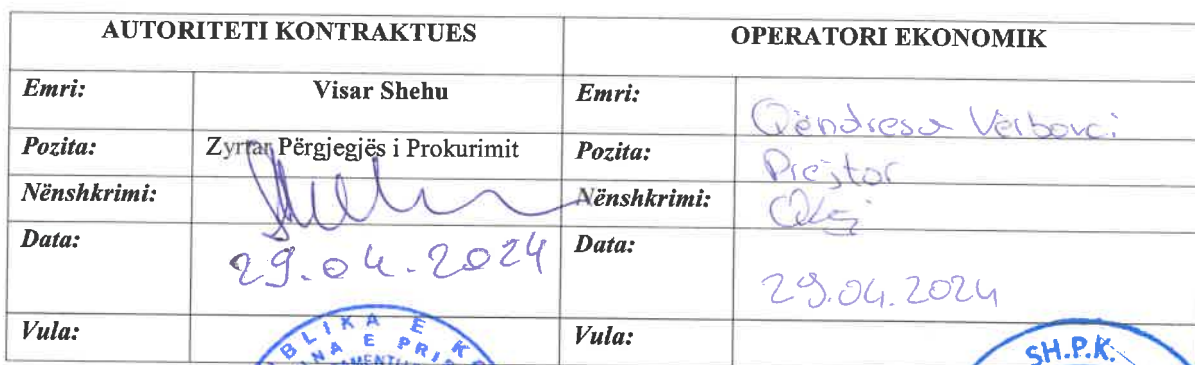 AUTORITETI KONTRAKTUES OPERATORI EKONOMIK
Emri: Visar Shehu Emri: Qëndresa Vërbovci
Pozita: Zyrtar Përgjegjës i Prokurimit Pozita: Prejtor
Nënshkrimi: Nënshkrimi:
Data: 29.04.2024 Data: 29.04.2024
Vula: Vula:
SH.P.K.